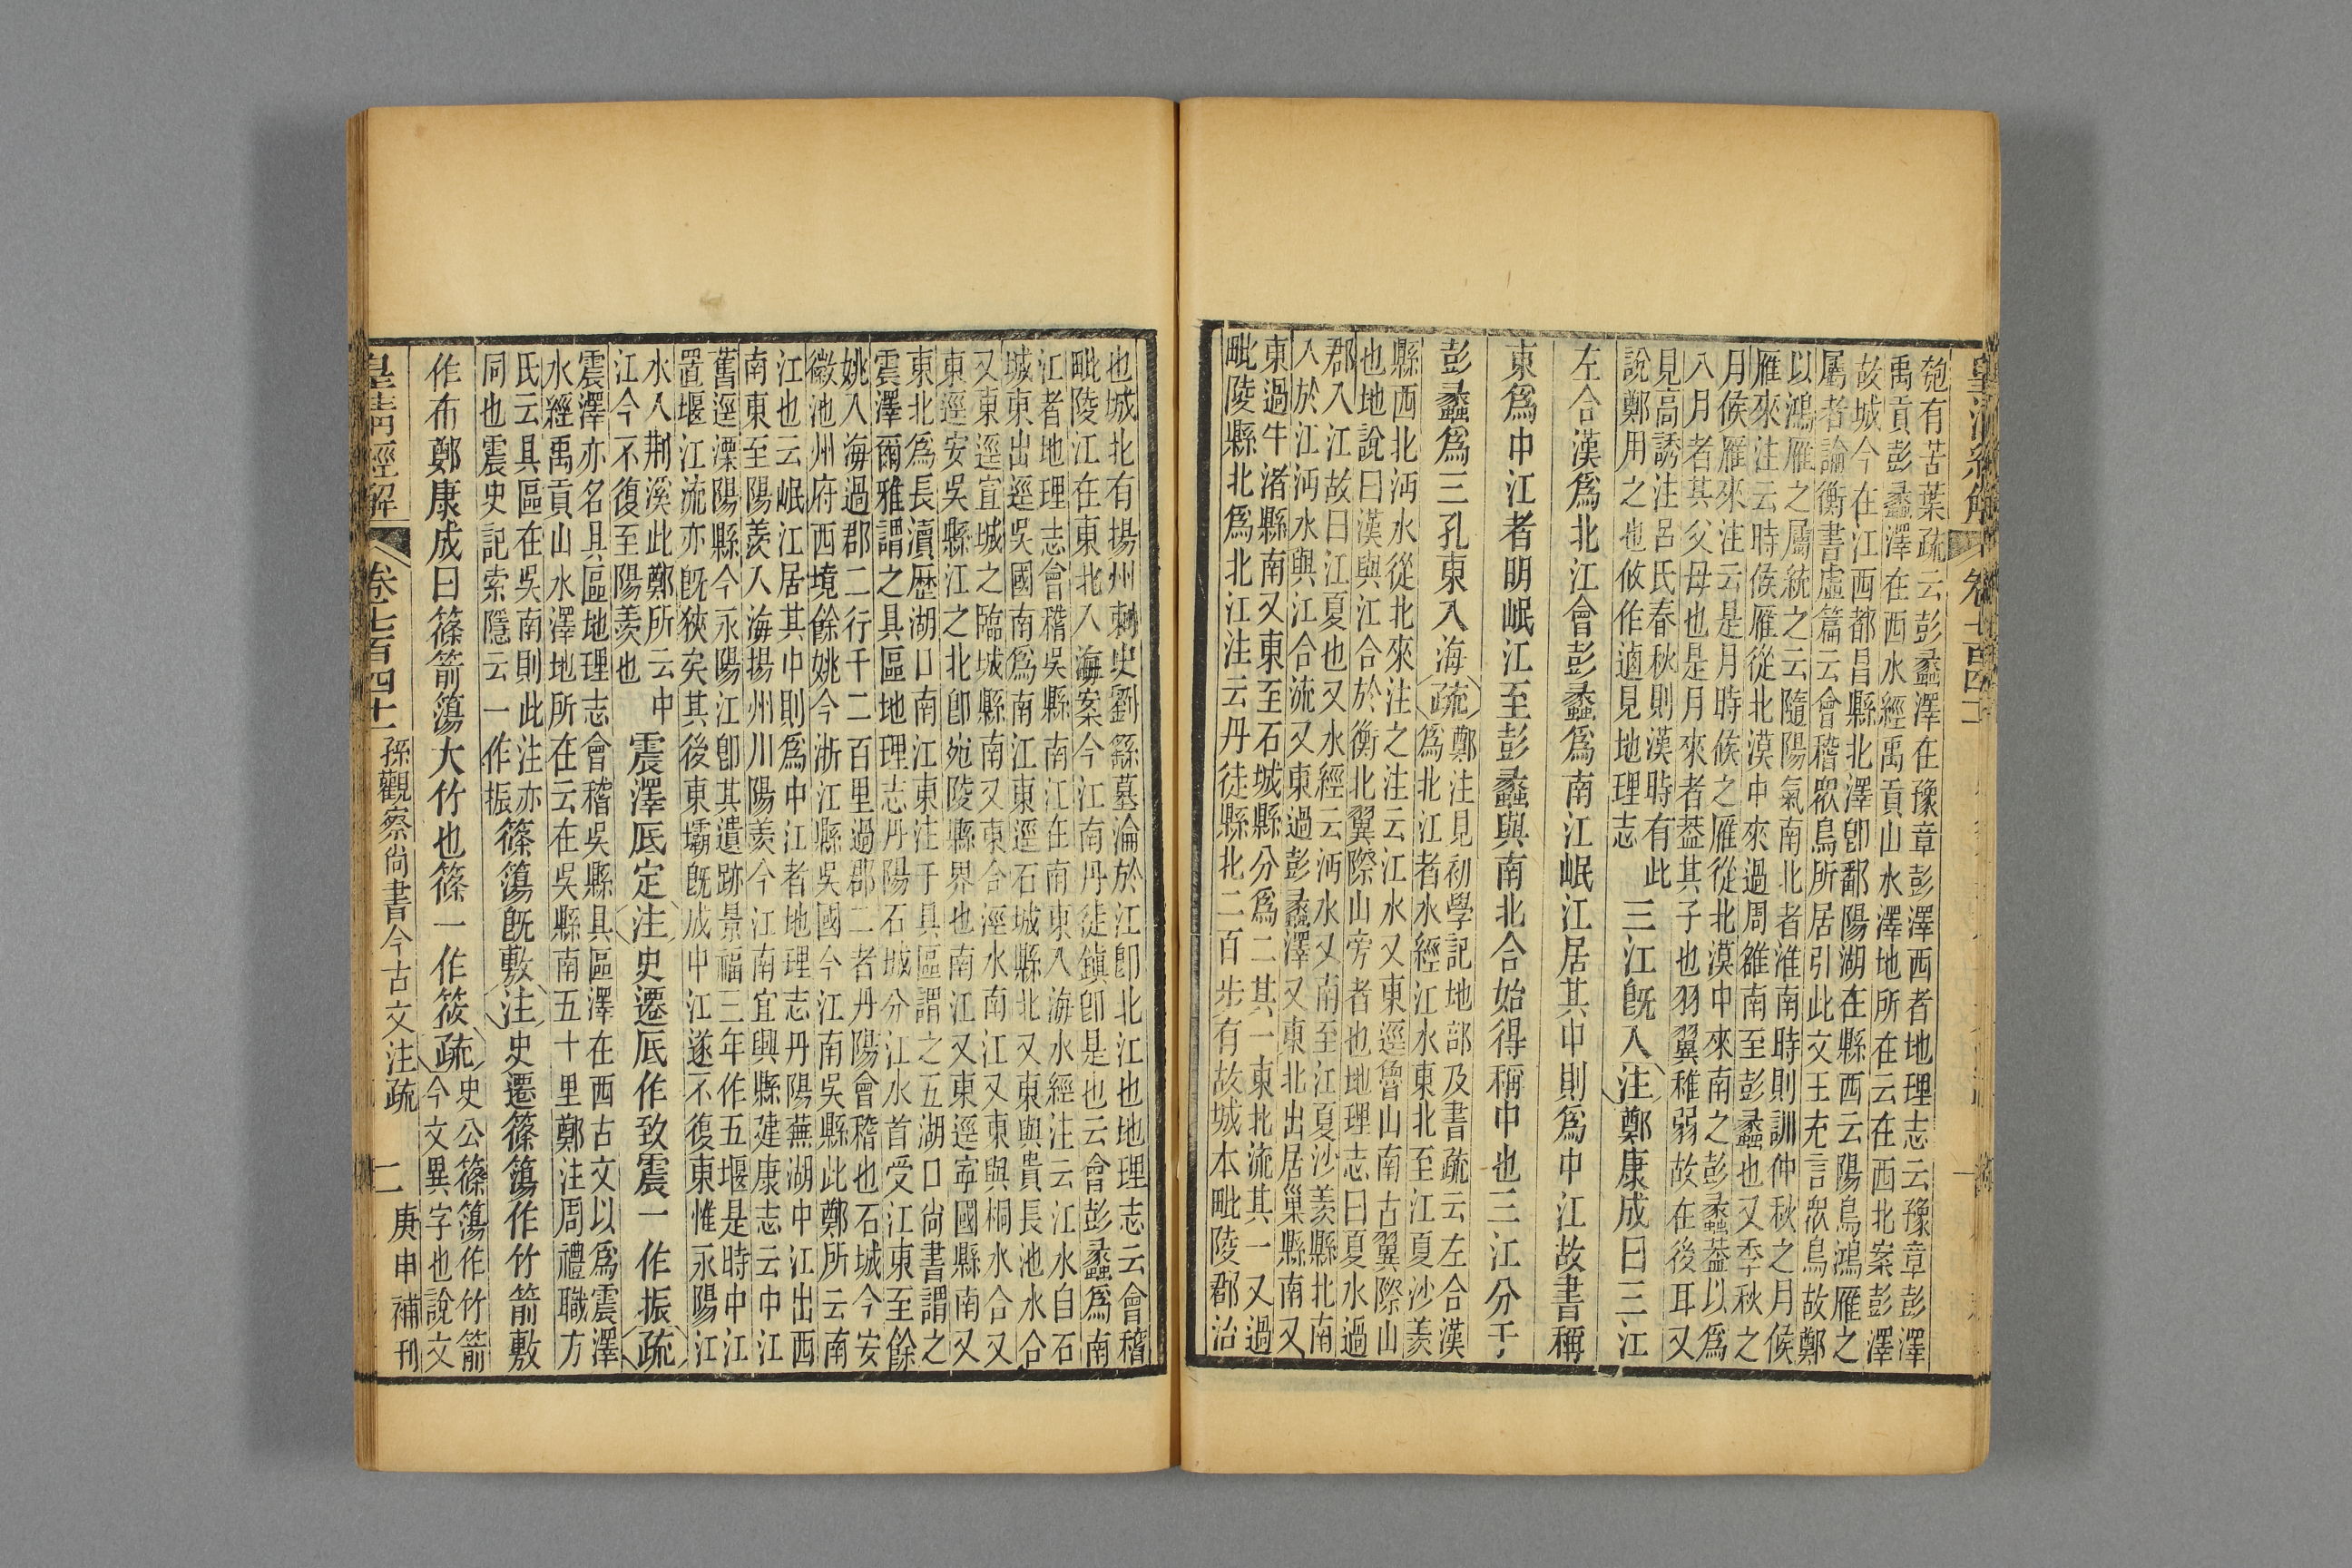 匏有苦葉疏云彭蠡澤在豫章彭澤西者地理志云豫章彭澤
禹貢彭蠡澤在西水經禹貢山水澤地所在云在西北案彭澤
故城今在江西都昌縣北澤卽鄱陽湖在縣西云陽鳥鴻雁之
屬者論衡書虛篇云會稽眾鳥所居引此文王充言眾鳥故鄭
以鴻雁之屬統之云隨陽氣南北者淮南時則訓仲秋之月候
雁來注云時候雁從北漠中來過周雒南至彭蠡也又季秋之
月候雁來注云是月時候之雁從北漠中來南之彭蠡葢以爲
八月者其父母也是月來者葢其子也羽翼稚弱故在後耳又
見高誘注呂氏春秋則漢時有此
說鄭用之也攸作逌見地理志
三江旣入注鄭康成曰三江
左合漢爲北江會彭蠡爲南江岷江居其中則爲中江故書稱
東爲中江者明岷江至彭蠡與南北合始得稱中也三江分于
彭蠡爲三孔東入海疏
鄭注見初學記地部及書疏云左合漢
爲北江者水經江水東北至江夏沙羨
縣西北沔水從北來注之注云江水又東逕魯山南古翼際山
也地說曰漢與江合於衡北翼際山旁者也地理志曰夏水過
郡入江故曰江夏也又水經云沔水又南至江夏沙羨縣北南
入於江沔水與江合流又東過彭蠡澤又東北出居巢縣南又
東過牛渚縣南又東至石城縣分爲二其一東北流其一又過
毗陵縣北爲北江注云丹徒縣北二百步有故城本毗陵郡治
也城北有揚州刺史劉繇墓淪於江卽北江也地理志云會稽
毗陵江在東北入海案今江南丹徒鎮卽是也云會彭蠡爲南
江者地理志會稽吳縣南江在南東入海水經注云江水自石
城東出逕吳國南爲南江東逕石城縣北又東與貴長池水合
又東逕宣城之臨城縣南又東合涇水南江又東與桐水合又
東逕安吳縣江之北卽宛陵縣界也南江又東逕寧國縣南又
東北爲長瀆歷湖口南江東注于具區謂之五湖口尙書謂之
雲澤爾雅謂之具區地理志丹陽石城分江水首受江東至餘
姚入海過郡二行千二百里過郡二者丹陽會稽也石城今安
徽池州府西境餘姚今浙江縣吳國今江南吳縣此鄭所云南
江也云岷江居其中則爲中江者地理志丹陽蕪湖中江出西
南東至陽羨入海揚州川陽羨今江南宜興縣建康志云中江
舊逕溧陽縣今永陽江卽其遺跡景福三年作五堰是時中江
置堰江流亦旣狹矣其後東壩旣成中江遂不復東惟永陽江
水入荆溪此鄭所云中
江今不復至陽羨也
震澤厎定注史遷厎作致震一作振疏
震澤亦名具區地理志會稽吳縣具區澤在西古文以爲震澤
水經禹貢山水澤地所在云在吳縣南五十里鄭注周禮職方
氏云具區在吳南則此注亦
同也震史記索隱云一作振
篠簜旣敷注史遷篠簜作竹箭敷
作布鄭康成曰篠箭簜大竹也篠一作筱疏
史公篠簜作竹箭
今文異字也說文
皇淸經解 卷七百四十一 孫觀察尙書今古文注疏 二 庚申補刊